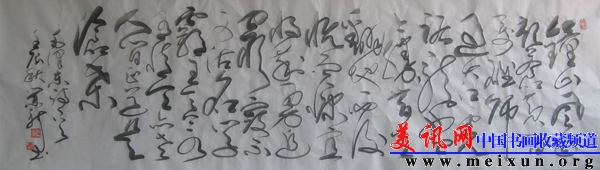 鐘山风雨
起苍黄百
万雄师
过大江虎
踞龙盘
今胜昔天
翻地覆
慨而慷宜
将剩勇追
穷寇不
可沽名学
霸王天若
有情天亦老
人间正道是
沧桑
毛泽东诗
壬辰秋
书
美讯网 中国书画收藏频道
www.meixun.org